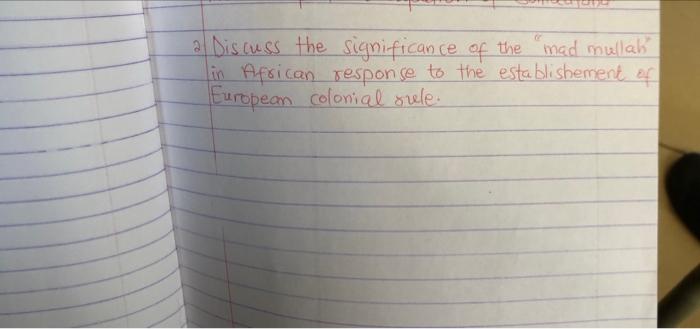 2 Discuss the significance of the "mad mullah"
in African response to the establishement of
European colonial rule.